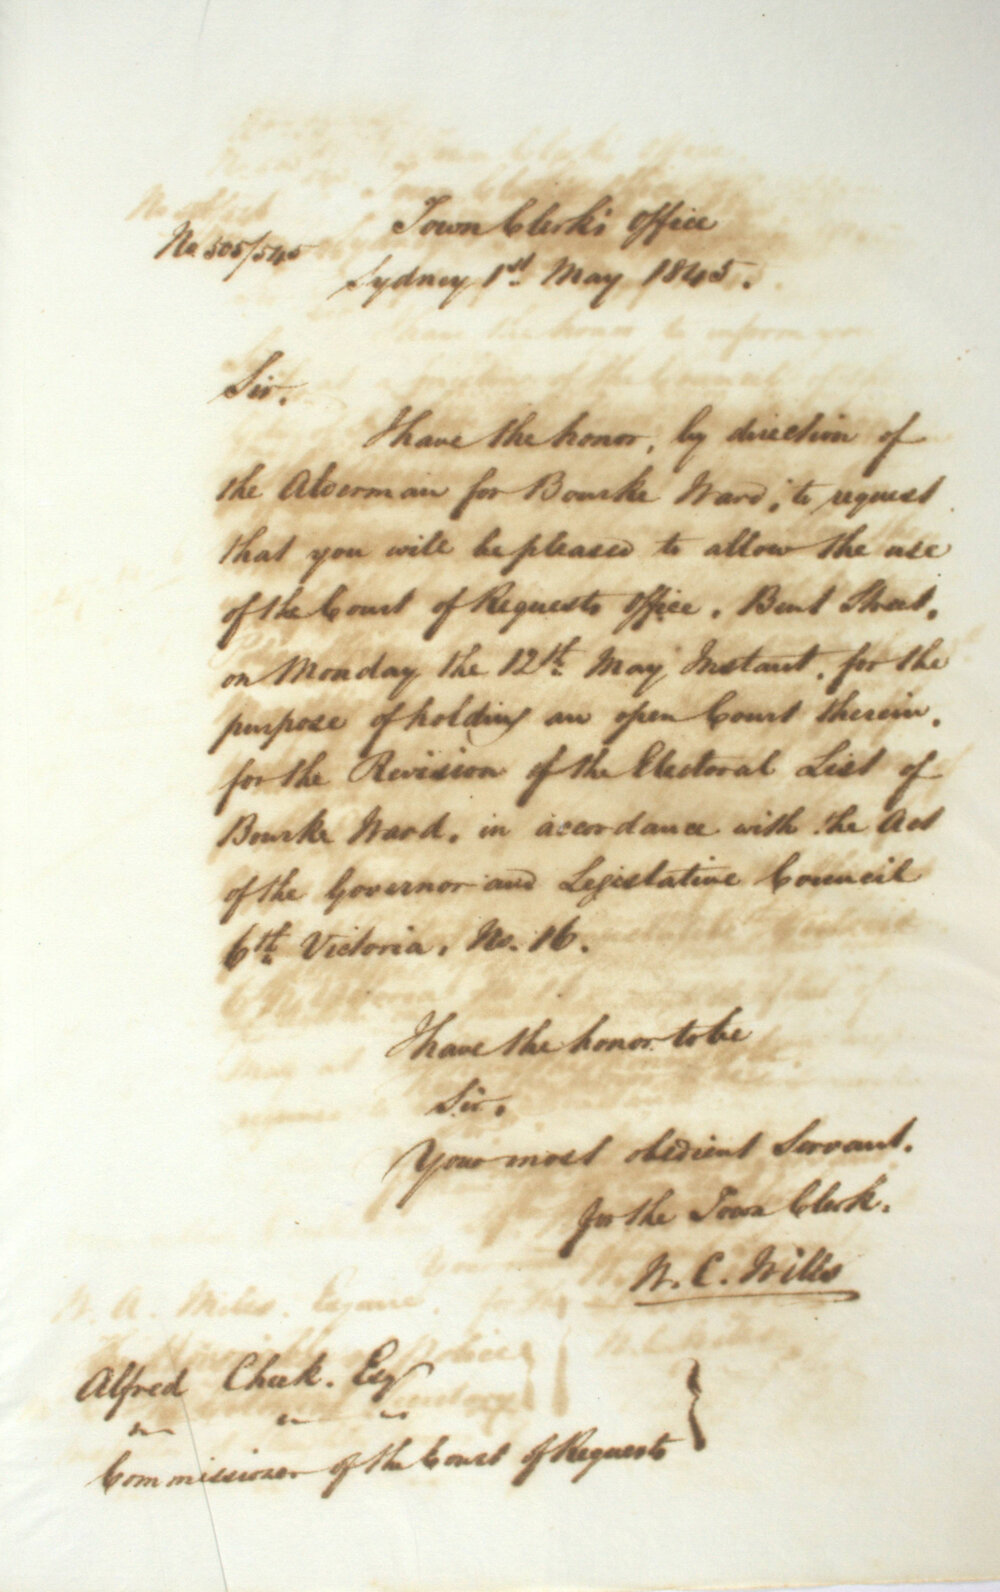 Town Clerk's Office
No 505/545
Sydney 1st May 1845.
Sir,
I have the honor, by direction of
the Alderman for Bourke Ward, to request
that you will be pleased to allow the use
of the Court of Requests Office, Bent Street,
on Monday the 12th May Instant, for the
purpose of holding an open Court therein,
for the Revision of the Electoral List of
Bourke Ward, in accordance with the Act
of the Governor and Legislative Council
6th Victoria, No. 16.
I have the honor to be
Sir,
Your most obedient Servant.
for the Town Clerk.
W. C. Wills
Alfred Cheek. Esq
Commissioner of the Court of Requests